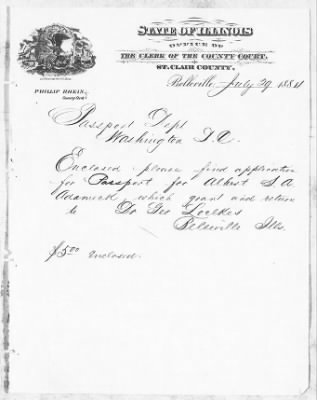 STATE OF ILLINOIS
OFFICE OF
THE CLERK OF THE COUNTY COURT,
ST. CLAIR COUNTY.
PHILIP RHEIN,
County Clerk.
Belleville, July 29 1884
Passport Dept
Washington D.C.
Enclosed please find application
for Passport for Albert S. A.
which grant and return
to Dr Geo Loelkes
Belleville Ills.
$5.00 enclosed.